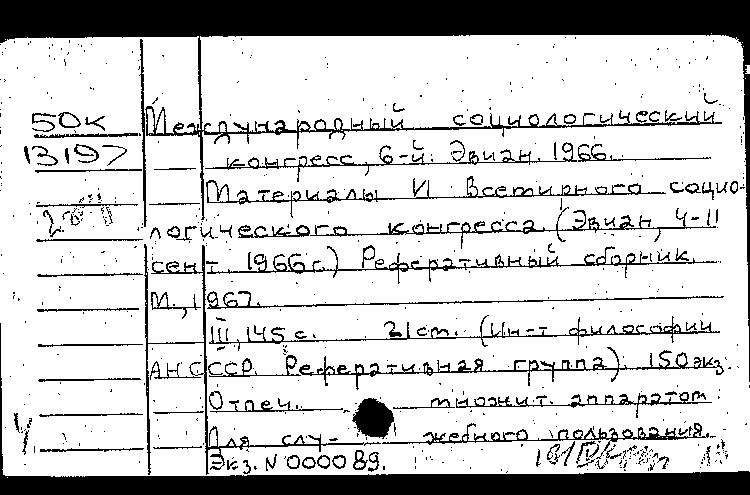 50К Международный социологический
13197 конгресс, 6-й. Эвиан. 1966.
Материалы VI Всемирного социо-
логического конгресса. (Эвиан, 4-11
сент. 1966 г.) Реферативный сборник.
М., 1967.
III, 145 с. 21 cm. (Ин-т философии
АН СССР. Реферативная группа). 150 экз.
Отпеч. множит. аппаратом.
Для слу- жебного пользования.
Экз. N 000089.